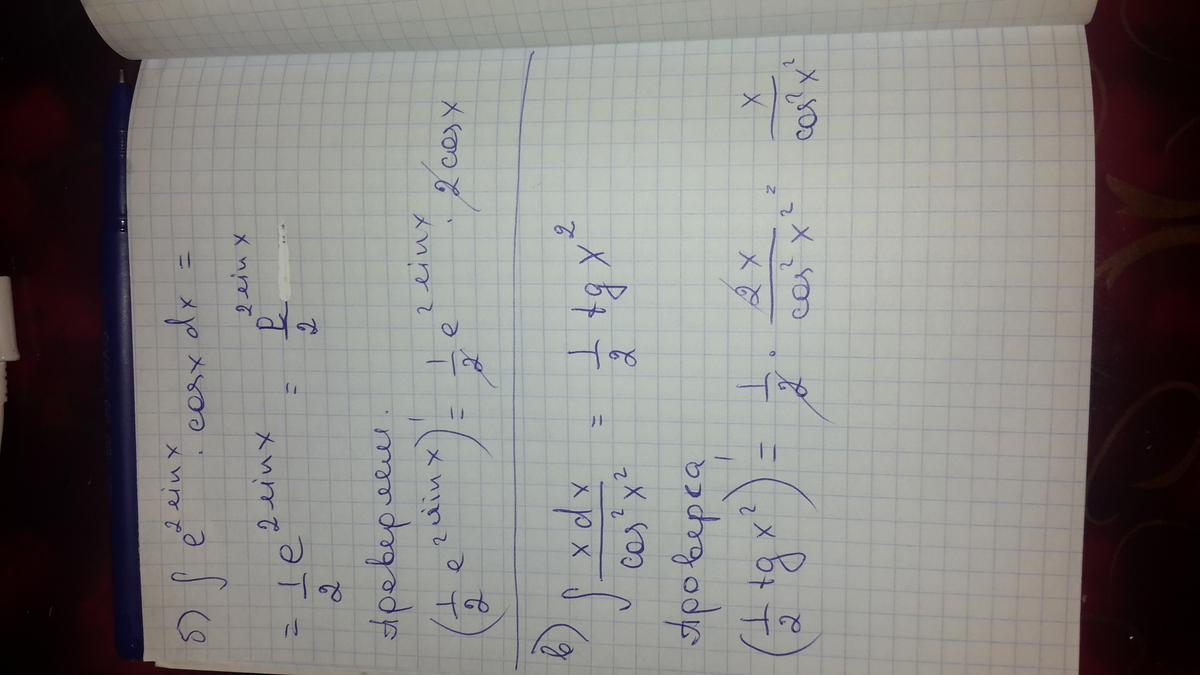 б) ∫ e^{2 sin x} · cos x dx =
= 1/2 e^{2 sin x} = e^{2 sin x}/2
Проверяем.
(1/2 e^{2 sin x})' = 1/2 e^{2 sin x} · 2 cos x
в) ∫ x dx / cos² x² = 1/2 tg x²
Проверка
(1/2 tg x²)' = 1/2 · 2x / cos² x² = x / cos² x²